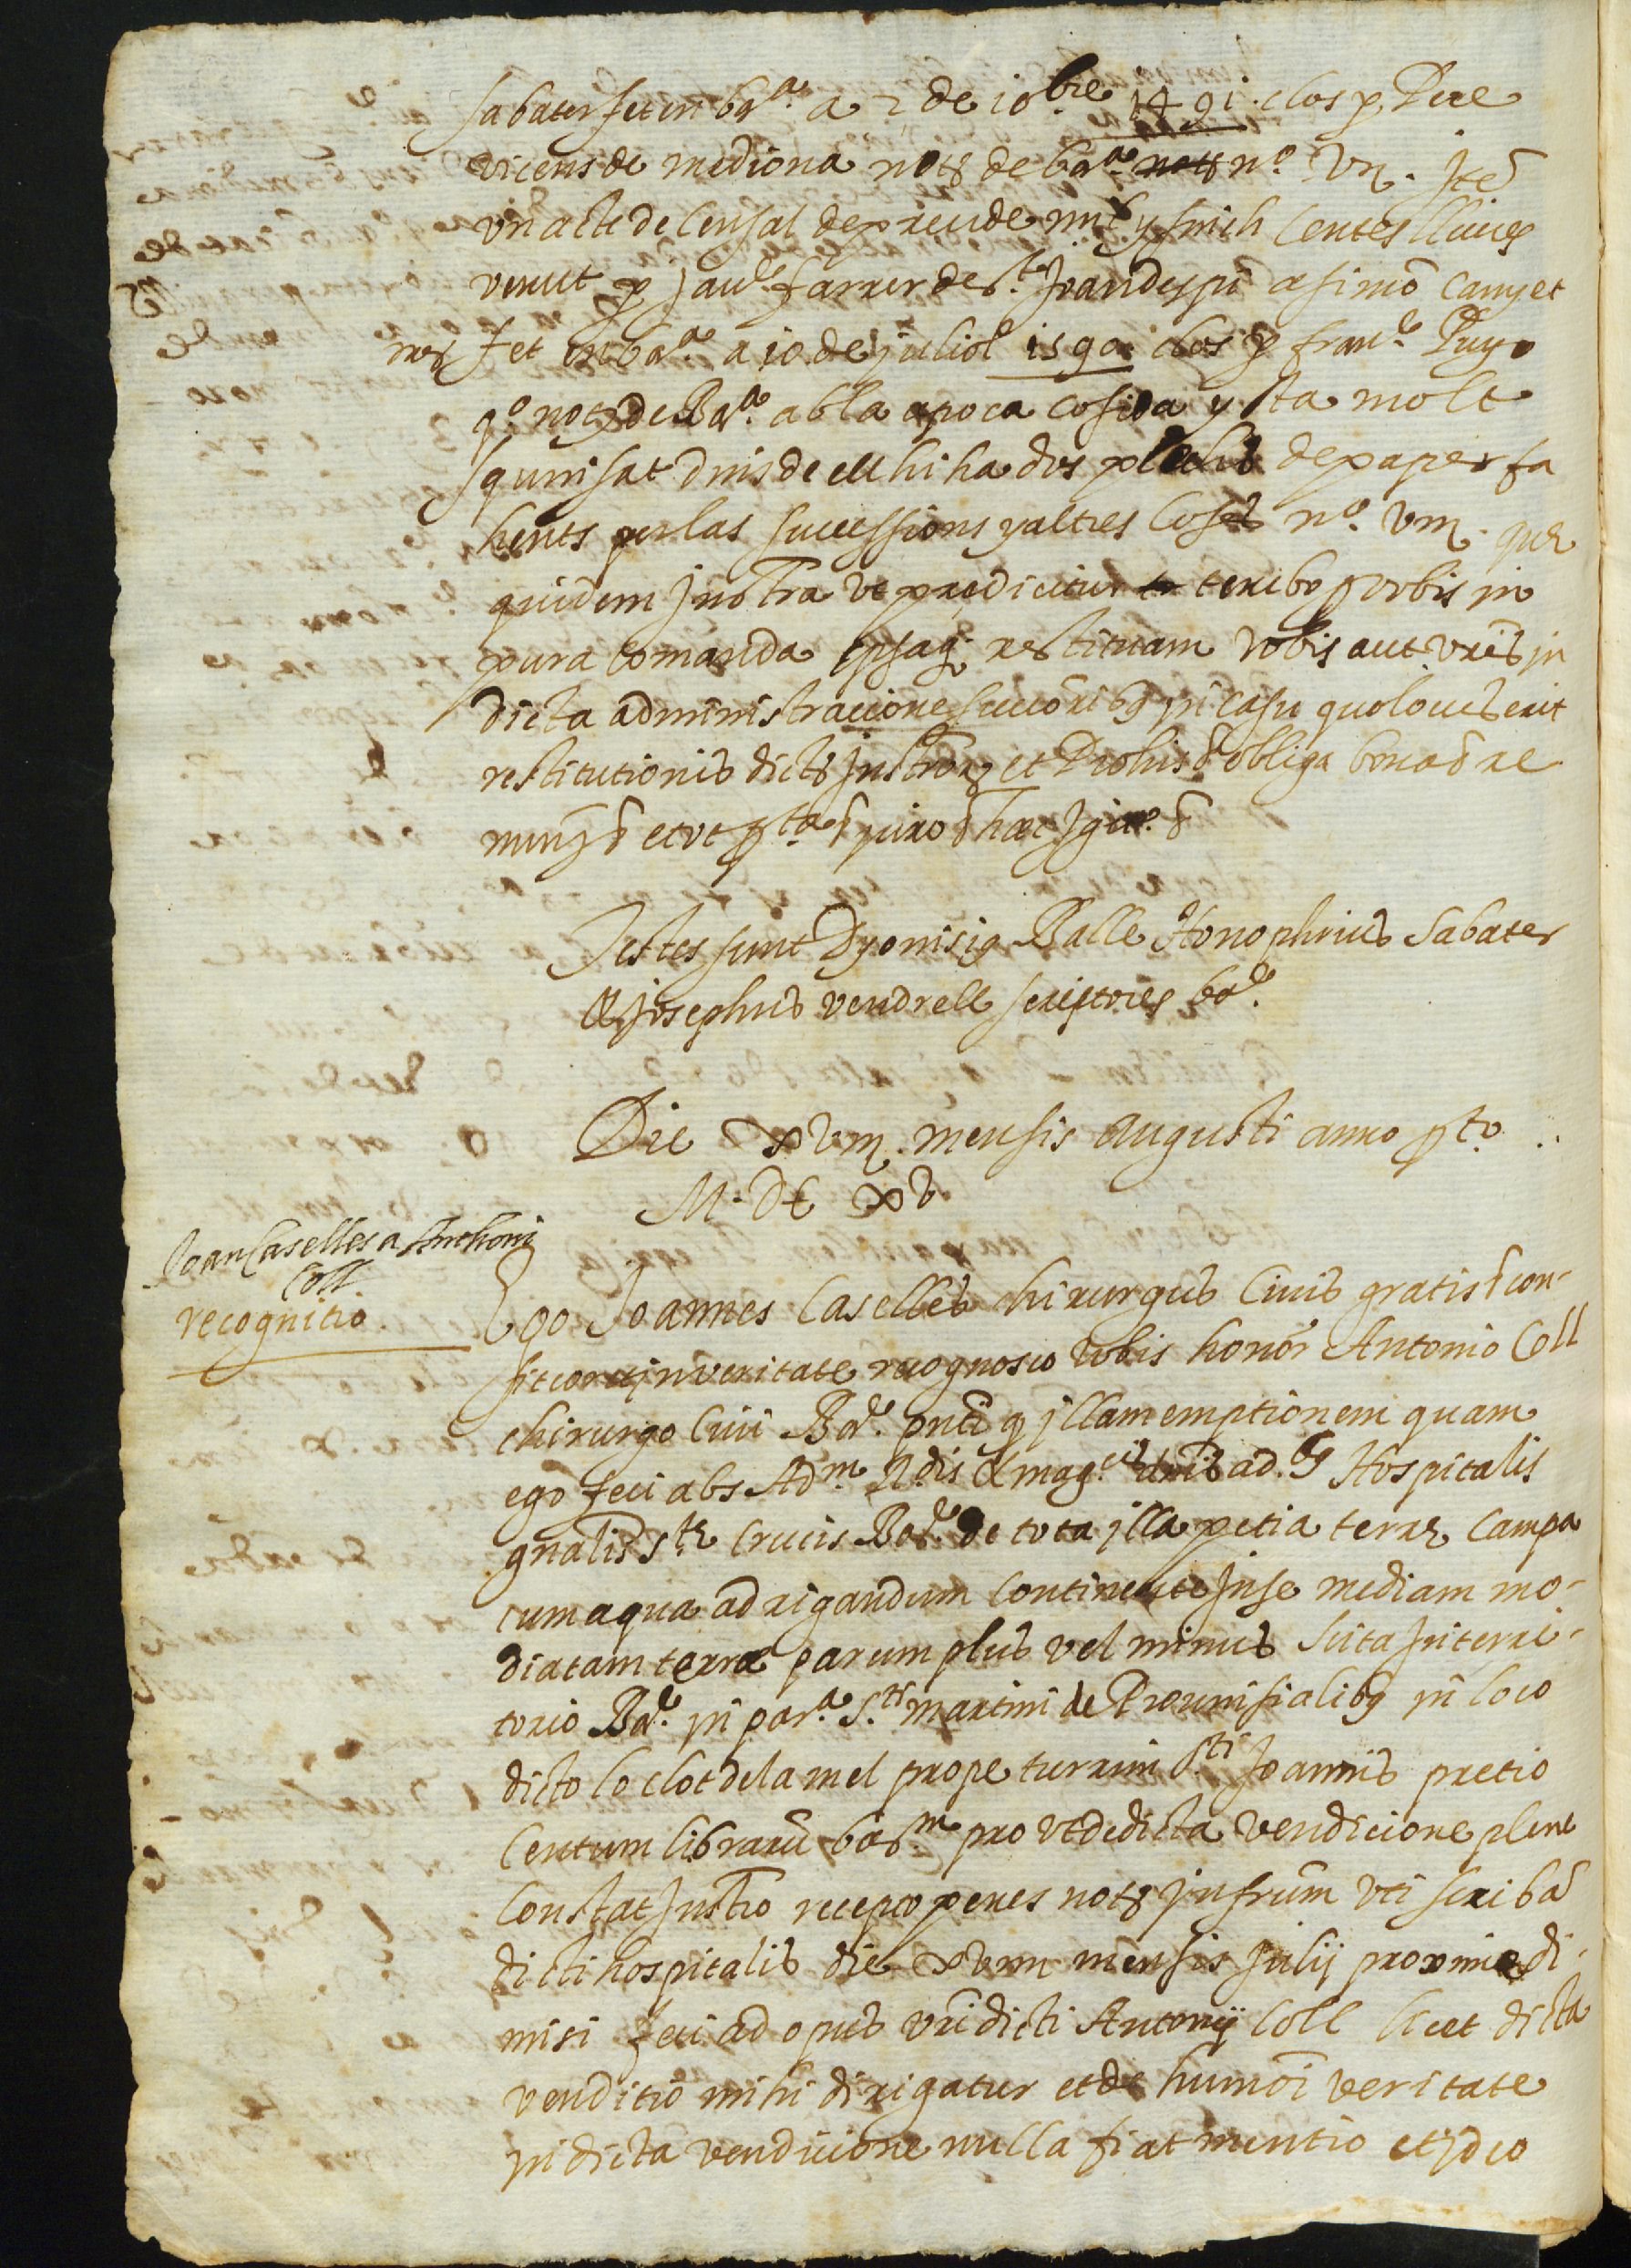 sabater fet en bar.ª a 2 de 10bre 1491. clos p Pere
vicens de mediona not.s de bar.ª nots nº. vij. Ite
un acte de Censal de preu de mil y sinch Centes lliures
venut p Jau.e farrer de s.t Joan despi a simo Canyet
mes fet en bar.ª a 10 de juliol 1590 clos p fran.c Puyo
qº not. de Bar.ª ab la apoca Cosida y sta molt
squinsat dins de ell hi ha dos plechs de paper fa
hents per las successions y altres Coses nº. viij. que
quidem Instra ut predicitur te tenebo p vobis in
pura Comanda ipsaq. restituam vobis aut vris in
dicta administracione successorib9 in casu quolovis erit
restitutionis dicts Instrorz et Prohis & obliga bona & re
nunz & et ut p.ta & juro & hec igitur. &
Testes sunt Dyonisi9 Balle Honophrius Sabater
& Josephus vendrell scriptores bar.e
Die xviij. mensis Augusti anno pto.
M. DC xv
Joan Caselles a Anthoni
Coll
recognitio.
Ego Joannes Caselles chirurgus Civis gratis & con-
fiteor et in veritate recognosco vobis honor Antonio Coll
chirurgo Civi Bar.e pnti q illam emptionem quam
ego feci abs Ad.m R.dis & mag.cis dnis ad.9 Hospitalis
gnalis S.te Crucis Bar.e de tota illa petia terre Campa
cum aqua ad rigandum Continente in se mediam mo-
diatam terre parum plus vel minus Scita in terri-
torio Bar.e in par.ª S.ti martini de Provensialib9 in loco
dicto lo clot de la mel prope turrim S.ti Joannis pretio
Centum libraru bar.m pro ut de dicta vendicione plene
Constat Instro recepto penes nots infrum uti scriba
dicti hospitalis die xviij mensis Julij proxime di-
misi feci ad opus vri dicti Antonij Coll licet dicta
venditio mihi dirigatur et de humoi veritate
in dicta vendicione nulla fiat mentio et ideo